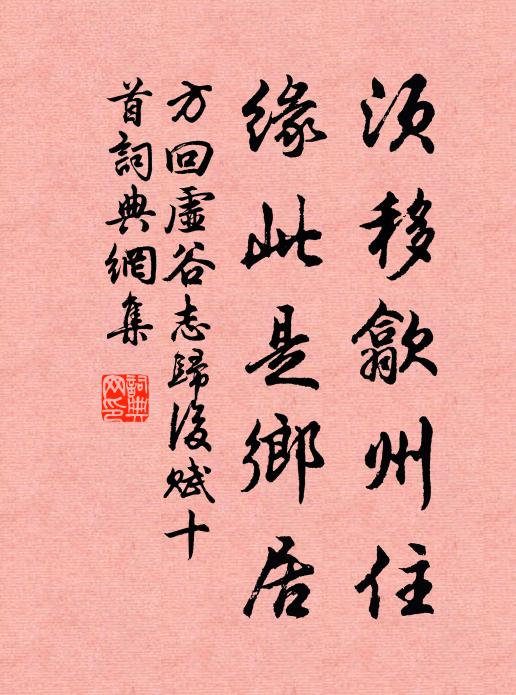 須移歙州住
緣此是鄉居
方回虛谷志歸後賦十
首詞典網集
詞典
网印